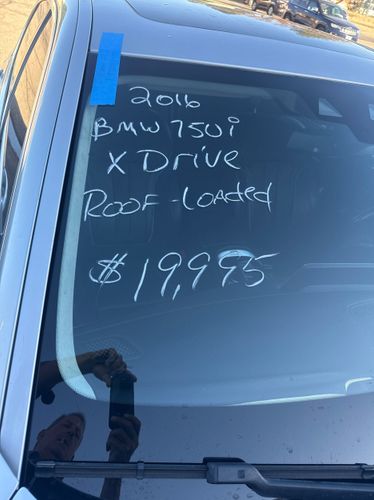 2016
BMW 750i
X DRIVE
ROOF - LOADED
$19,995